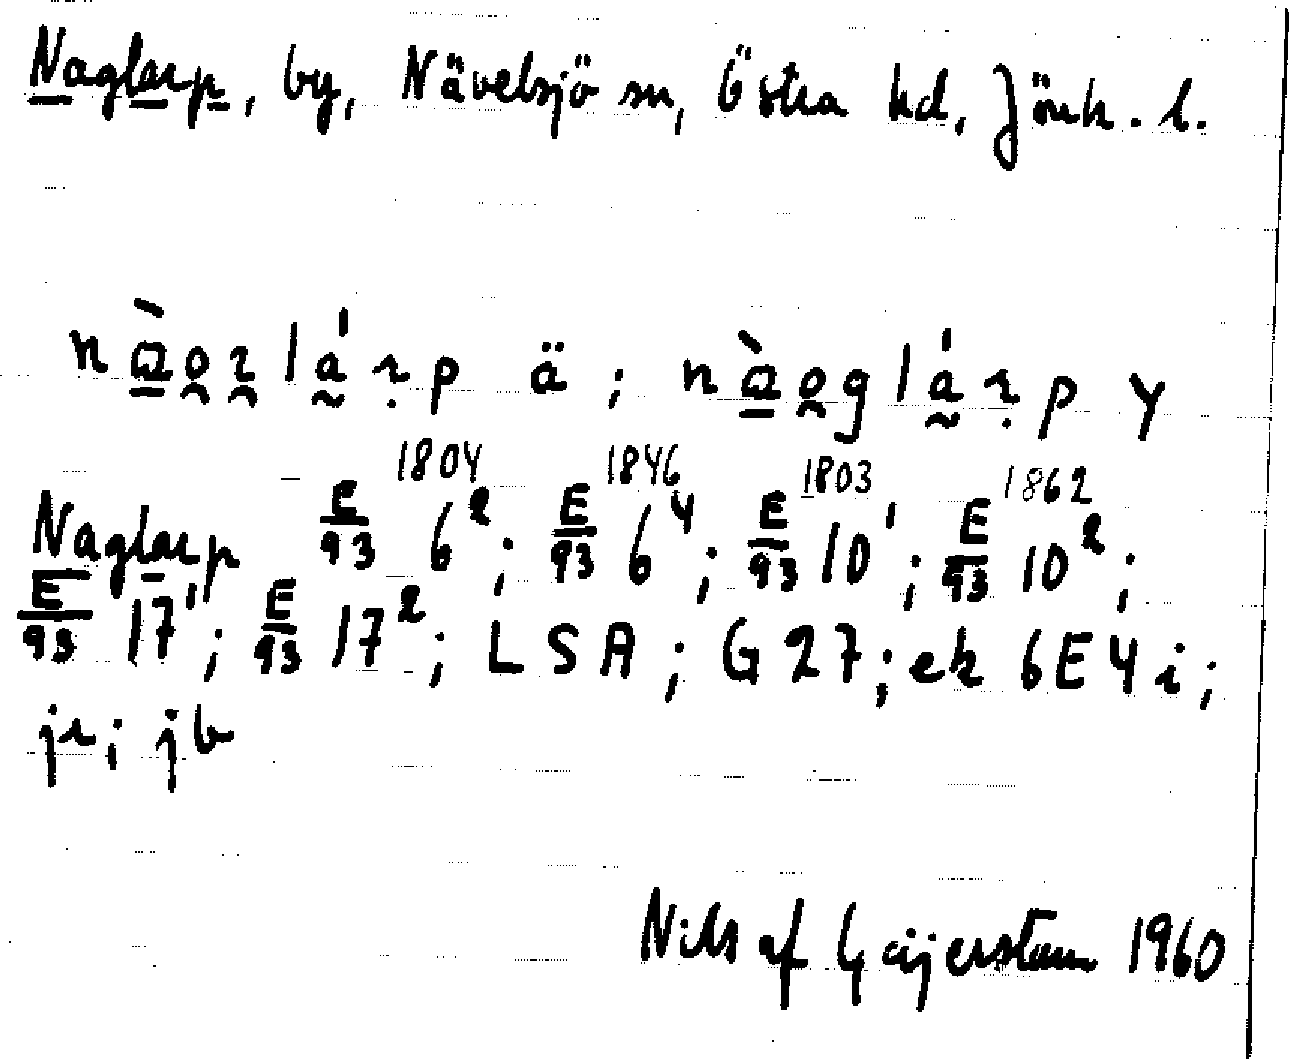 Naglarp, by, Nävelsjö sn, Östra hd, Jönk. l.
nàọɀláɽp ä ; nàọgláɽp y
Naglarp E/93 6² 1804; E/93 6⁴ 1846; E/93 10¹ 1803; E/93 10² 1862;
E/93 17¹; E/93 17²; LSA; G27; ek 6E4i;
jr; jb
Nils af Geijerstam 1960